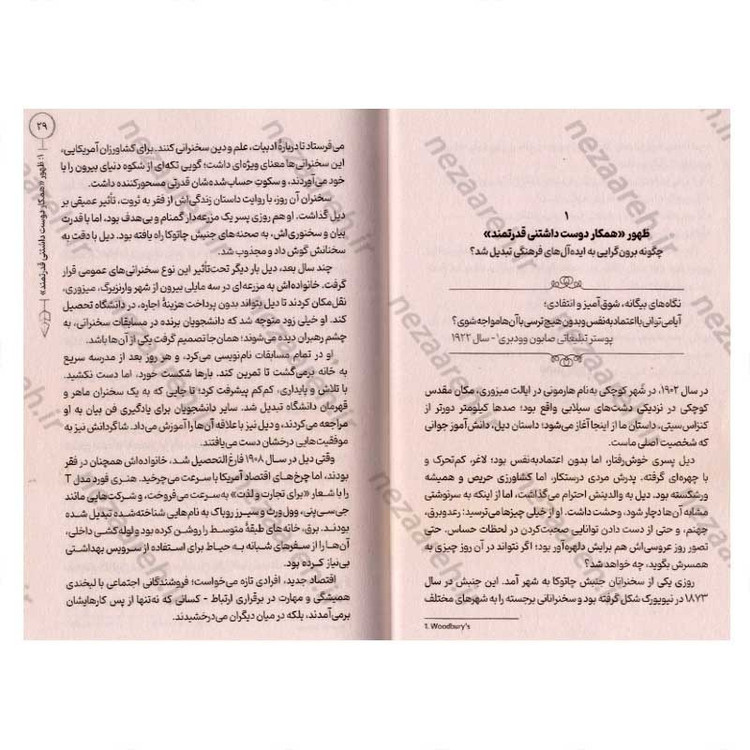 ۱
ظهور «همکار دوست داشتنی قدرتمند»
چگونه برون‌گرایی به ایده‌آل‌های فرهنگی تبدیل شد؟
نگاه‌های بیگانه، شوق‌آمیز و انتقادی؛
آیا می‌توانی با اعتماد به نفس و بدون هیچ ترسی با آن‌ها مواجه شوی؟
پوستر تبلیغاتی صابون وودبری۱ - سال ۱۹۲۲
در سال ۱۹۰۲، در شهر کوچکی به‌نام هارمونی در ایالت میزوری، مکان مقدس
کوچکی در نزدیکی دشت‌های سیلابی واقع بود؛ صدها کیلومتر دورتر از
کنزاس‌سیتی، داستان ما از اینجا آغاز می‌شود؛ داستان دیل، دانش‌آموز جوانی
که شخصیت اصلی ماست.
دیل پسری خوش‌رفتار، اما بدون اعتمادبه‌نفس بود؛ لاغر، کم‌تحرک و
با چهره‌ای گرفته. پدرش مردی درستکار، اما کشاورزی حریص و همیشه
ورشکسته بود. دیل به والدینش احترام می‌گذاشت، اما از اینکه به سرنوشتی
مشابه آن‌ها دچار شود، وحشت داشت. او از خیلی چیزها می‌ترسید: رعدوبرق،
جهنم، و حتی از دست دادن توانایی صحبت‌کردن در لحظات حساس. حتی
تصور روز عروسی‌اش هم برایش دلهره‌آور بود؛ اگر نتواند در آن روز چیزی به
همسرش بگوید، چه خواهد شد؟
روزی یکی از سخنرانان جنبش چاتوکا به شهر آمد. این جنبش در سال
۱۸۷۳ در نیویورک شکل گرفته بود و سخنرانانی برجسته را به شهرهای مختلف
1. Woodbury's
۲۹
۱: ظهور «همکار دوست داشتنی قدرتمند»
می‌فرستاد تا دربارهٔ ادبیات، علم و دین سخنرانی کنند. برای کشاورزان آمریکایی،
این سخنرانی‌ها معنای ویژه‌ای داشت؛ گویی تکه‌ای از شکوه دنیای بیرون را با
خود می‌آوردند، و سکوتِ حساب‌شده‌شان قدرتی مسحورکننده داشت.
سخنران آن روز، با روایت داستان زندگی‌اش از فقر به ثروت، تأثیر عمیقی بر
دیل گذاشت. او هم روزی پسر یک مزرعه‌دار گمنام و بی‌هدف بود، اما با قدرت
بیان و سخنوری‌اش، به صحنه‌های جنبش چاتوکا راه یافته بود. دیل با دقت به
سخنانش گوش داد و مجذوب شد.
چند سال بعد، دیل بار دیگر تحت‌تأثیر این نوع سخنرانی‌های عمومی قرار
گرفت. خانواده‌اش به مزرعه‌ای در سه مایلی بیرون از شهر وارنزبرگ، میزوری،
نقل‌مکان کردند تا دیل بتواند بدون پرداخت هزینهٔ اجاره، در دانشگاه تحصیل
کند. او خیلی زود متوجه شد که دانشجویان برنده در مسابقات سخنرانی، به
چشم رهبران دیده می‌شوند؛ همان‌جا تصمیم گرفت یکی از آن‌ها باشد.
او در تمام مسابقات نام‌نویسی می‌کرد، و هر روز بعد از مدرسه سریع
به خانه برمی‌گشت تا تمرین کند. بارها شکست خورد، اما دست نکشید.
با تلاش و پایداری، کم‌کم پیشرفت کرد؛ تا جایی که به یک سخنران ماهر و
قهرمان دانشگاه تبدیل شد. سایر دانشجویان برای یادگیری فن بیان به او
مراجعه می‌کردند، و دیل نیز با علاقه آن‌ها را آموزش می‌داد. شاگردانش نیز به
موفقیت‌هایی درخشان دست می‌یافتند.
وقتی دیل در سال ۱۹۰۸ فارغ‌التحصیل شد، خانواده‌اش همچنان در فقر
بودند، اما چرخ‌های اقتصاد آمریکا با سرعت می‌چرخید. هنری فورد مدل T
را با شعار «برای تجارت و لذت» به‌سرعت می‌فروخت، و شرکت‌هایی مانند
جی‌سی‌پنی، وول‌ورث و سیرز روباک به نام‌هایی شناخته‌شده تبدیل شده
بودند. برق، خانه‌های طبقهٔ متوسط را روشن کرده بود و لوله کشی داخلی،
آن‌ها را از سفرهای شبانه به حیاط برای استفاده از سرویس بهداشتی
بی‌نیاز کرده بود.
اقتصاد جدید، افرادی تازه می‌خواست؛ فروشندگانی اجتماعی با لبخندی
همیشگی و مهارت در برقراری ارتباط - کسانی که نه‌تنها از پس کارهایشان
برمی‌آمدند، بلکه در میان دیگران می‌درخشیدند.
nezaareh.ir